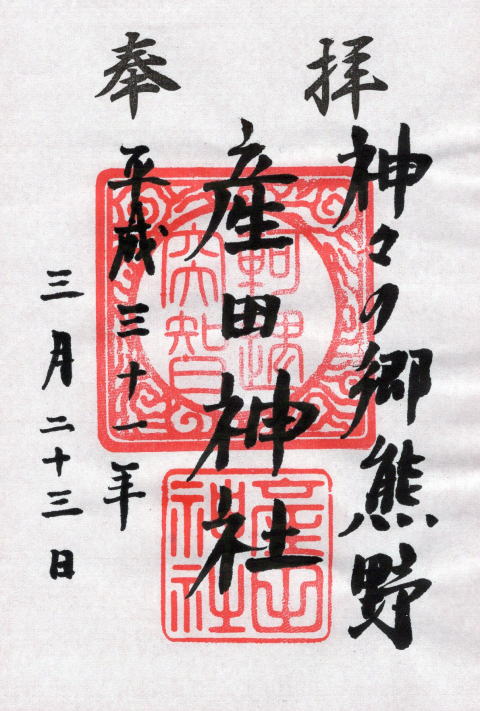 奉拝
神々の郷熊野
産田神社
平成三十一年
三月二十三日
軻遇
突智
産田
神社